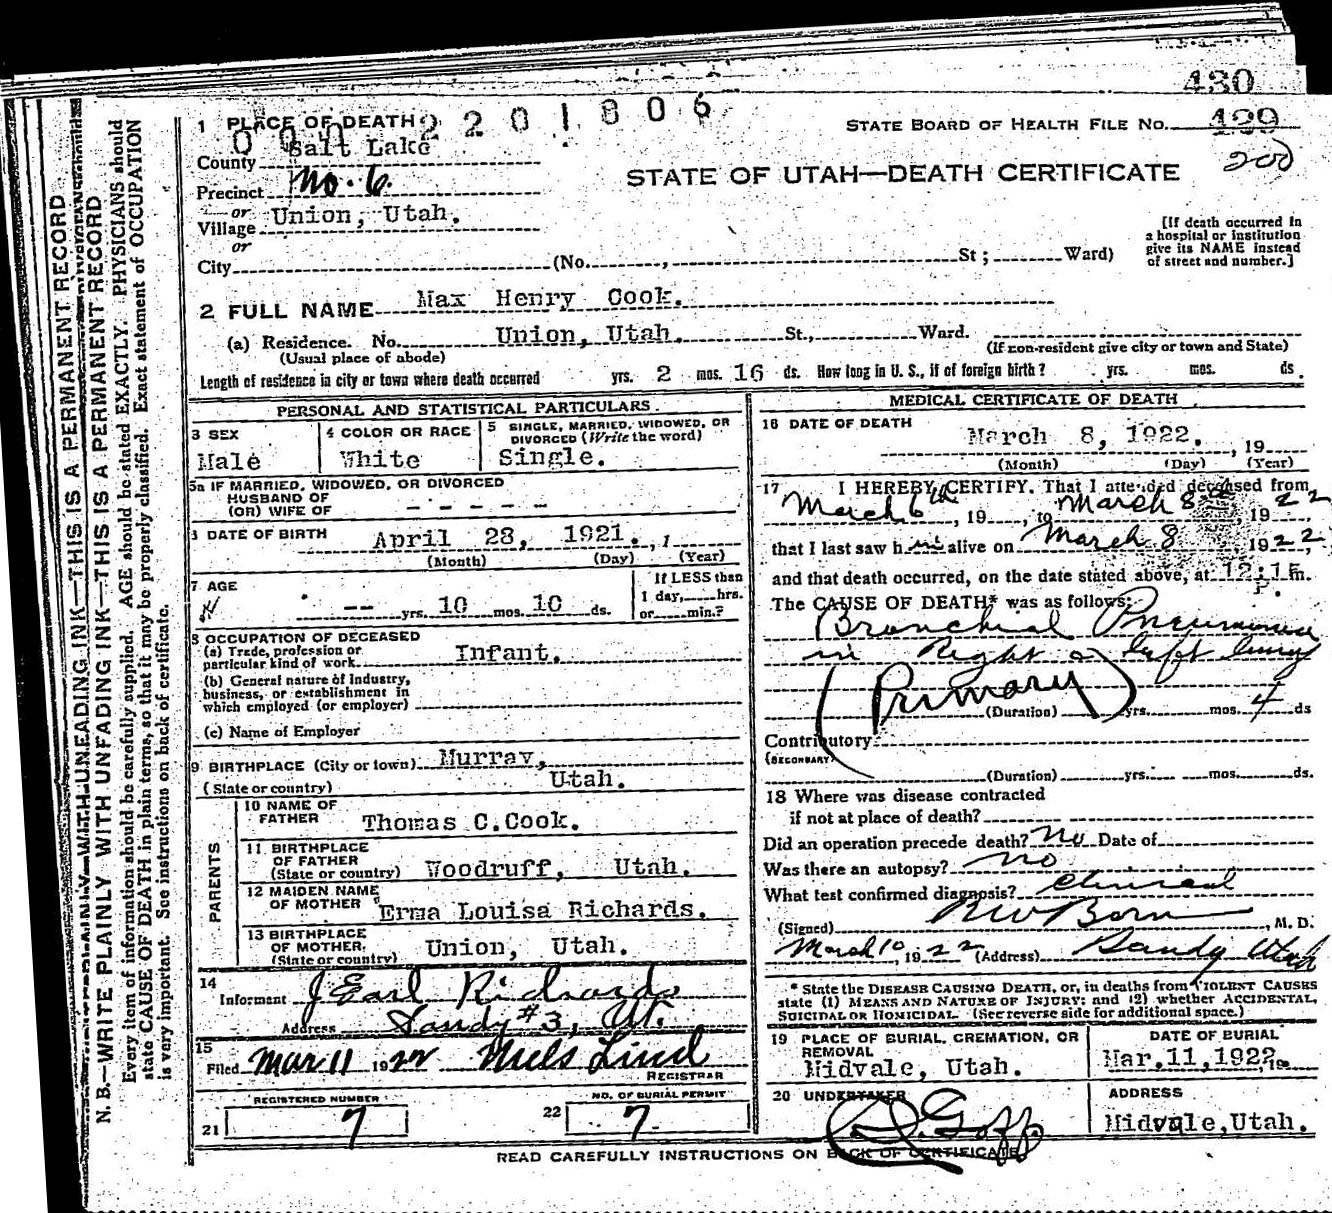 430
1 PLACE OF DEATH 0 0 0 2 2 0 1 8 0 6
STATE BOARD OF HEALTH FILE NO. 429
County Salt Lake
200
Precinct No. 6.
STATE OF UTAH—DEATH CERTIFICATE
or Village Union, Utah.
or
City (No. , St ; Ward)
[If death occurred in
a hospital or institution
give its NAME instead
of street and number.]
2 FULL NAME Max Henry Cook.
(a) Residence. No. Union, Utah. St., Ward.
(Usual place of abode) (If non-resident give city or town and State)
Length of residence in city or town where death occurred yrs. 2 mos. 16 ds. How long in U. S., if of foreign birth? yrs. mos. ds.
PERSONAL AND STATISTICAL PARTICULARS.
3 SEX
Male
4 COLOR OR RACE
White
5 SINGLE, MARRIED, WIDOWED, OR
DIVORCED (Write the word)
Single.
5a IF MARRIED, WIDOWED, OR DIVORCED
HUSBAND OF
(OR) WIFE OF - - - - -
DATE OF BIRTH April 28, 1921. , 1
(Month) (Day) (Year)
7 AGE
-- yrs. 10 mos. 10 ds.
If LESS than
1 day, hrs.
or min.?
8 OCCUPATION OF DECEASED
(a) Trade, profession or
particular kind of work Infant.
(b) General nature of industry,
business, or establishment in
which employed (or employer)
(c) Name of Employer
9 BIRTHPLACE (City or town) Murray,
(State or country) Utah.
PARENTS
10 NAME OF
FATHER Thomas C.Cook.
11 BIRTHPLACE
OF FATHER
(State or country) Woodruff, Utah.
12 MAIDEN NAME
OF MOTHER Erma Louisa Richards.
13 BIRTHPLACE
OF MOTHER.
(State or country) Union, Utah.
14
Informant J Earl Richards
Address Sandy #3, Ut.
15
Filed Mar 11 1922 Niels Lind
REGISTRAR
REGISTERED NUMBER
21 7
NO. OF BURIAL PERMIT
22 7
MEDICAL CERTIFICATE OF DEATH
16 DATE OF DEATH
March 8, 1922. , 19
(Month) (Day) (Year)
17 I HEREBY CERTIFY, That I attended deceased from
March 6th, 19 , to March 8th, 1922
that I last saw him alive on March 8 1922,
and that death occurred, on the date stated above, at 12:15 P. m.
The CAUSE OF DEATH* was as follows:
Bronchial Pneumonia
in Right & left lung
(Primary)
(Duration) yrs. mos. 4 ds
Contributory
(SECONDARY)
(Duration) yrs. mos. ds.
18 Where was disease contracted
if not at place of death?
Did an operation precede death? No Date of
Was there an autopsy? no
What test confirmed diagnosis? Clinical
(Signed) , M. D.
March 10, 1922 (Address) Sandy Utah
* State the DISEASE CAUSING DEATH, or, in deaths from VIOLENT CAUSES
state (1) MEANS AND NATURE OF INJURY; and (2) whether ACCIDENTAL,
SUICIDAL OR HOMICIDAL. (See reverse side for additional space.)
19 PLACE OF BURIAL, CREMATION, OR
REMOVAL
Midvale, Utah.
DATE OF BURIAL
Mar.11,1922. 19
20 UNDERTAKER
Goff
ADDRESS
Midvale,Utah.
READ CAREFULLY INSTRUCTIONS ON BACK OF CERTIFICATE
N. B.—WRITE PLAINLY WITH UNFADING INK—THIS IS A PERMANENT RECORD
Every item of information should be carefully supplied. AGE should be stated EXACTLY. PHYSICIANS should
state CAUSE OF DEATH in plain terms, so that it may be properly classified. Exact statement of OCCUPATION
is very important. See instructions on back of certificate.